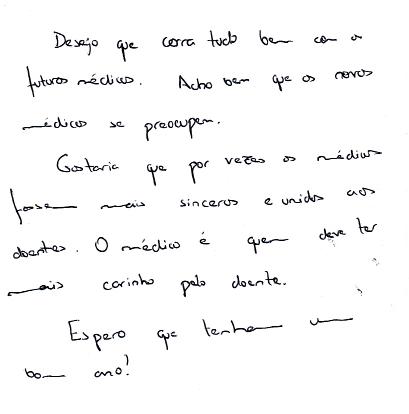 Desejo que corra tudo bem com os
futuros médicos. Acho bem que os novos
médicos se preocupem.
Gostaria que por vezes os médicos
fossem mais sinceros e unidos aos
doentes. O médico é quem deve ter
mais carinho pelo doente.
Espero que tenham um
bom ano!